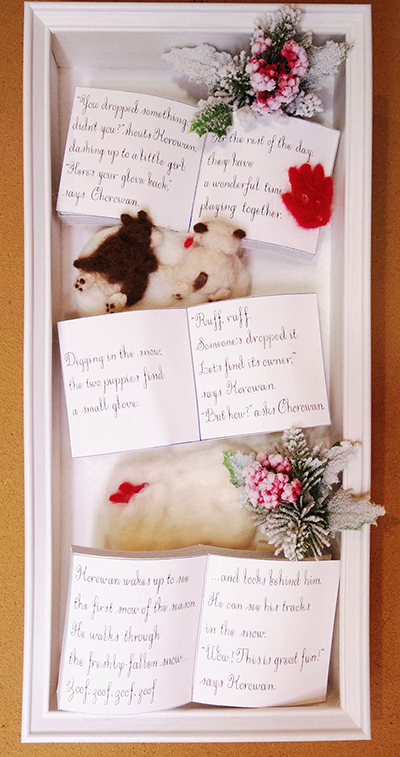 "You dropped something,
didn't you?" shouts Korowan,
dashing up to a little girl.
"Here's your glove back,"
says Chorowan.
For the rest of the day,
they have
a wonderful time
playing together.
Digging in the snow,
the two puppies find
a small glove.
"Ruff, ruff.
Someone's dropped it.
Let's find its owner,"
says Korowan.
"But how?" asks Chorowan.
Korowan wakes up to see
the first snow of the season.
He walks through
the freshly-fallen snow...
Zoof-zoof-zoof-zoof
...and looks behind him.
He can see his tracks
in the snow.
"Wow! This is great fun!"
says Korowan.